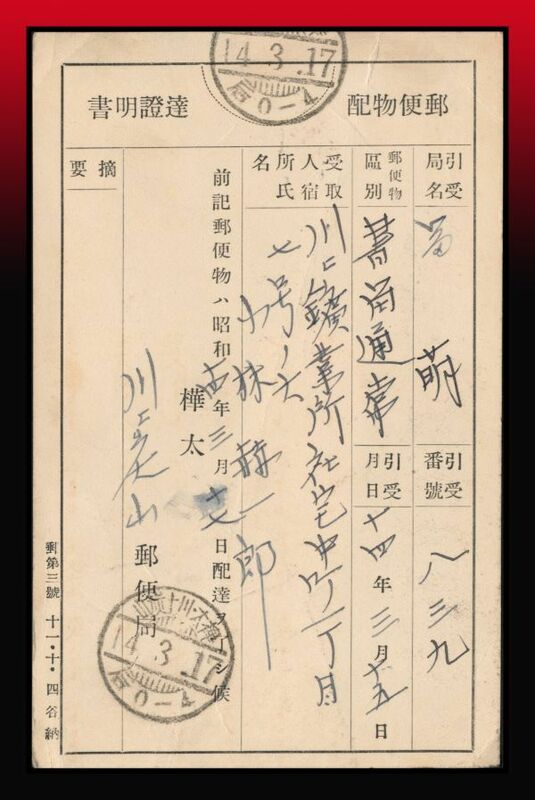 郵便物配達證明書
引受局名 留萌
引受番號 八三九
郵便物區別 書留通常
引受月日 十四年三月十五日
受取人宿所氏名
川上鑛業所社宅中町一丁目
七号ノ六
小林
一郎
前記郵便物ハ昭和十四年三月十七日配達
候
樺太
川上炭山郵便局
摘要
14.3.17
0-4
14.3.17
0-4
郵第三號 十一・十・四谷納